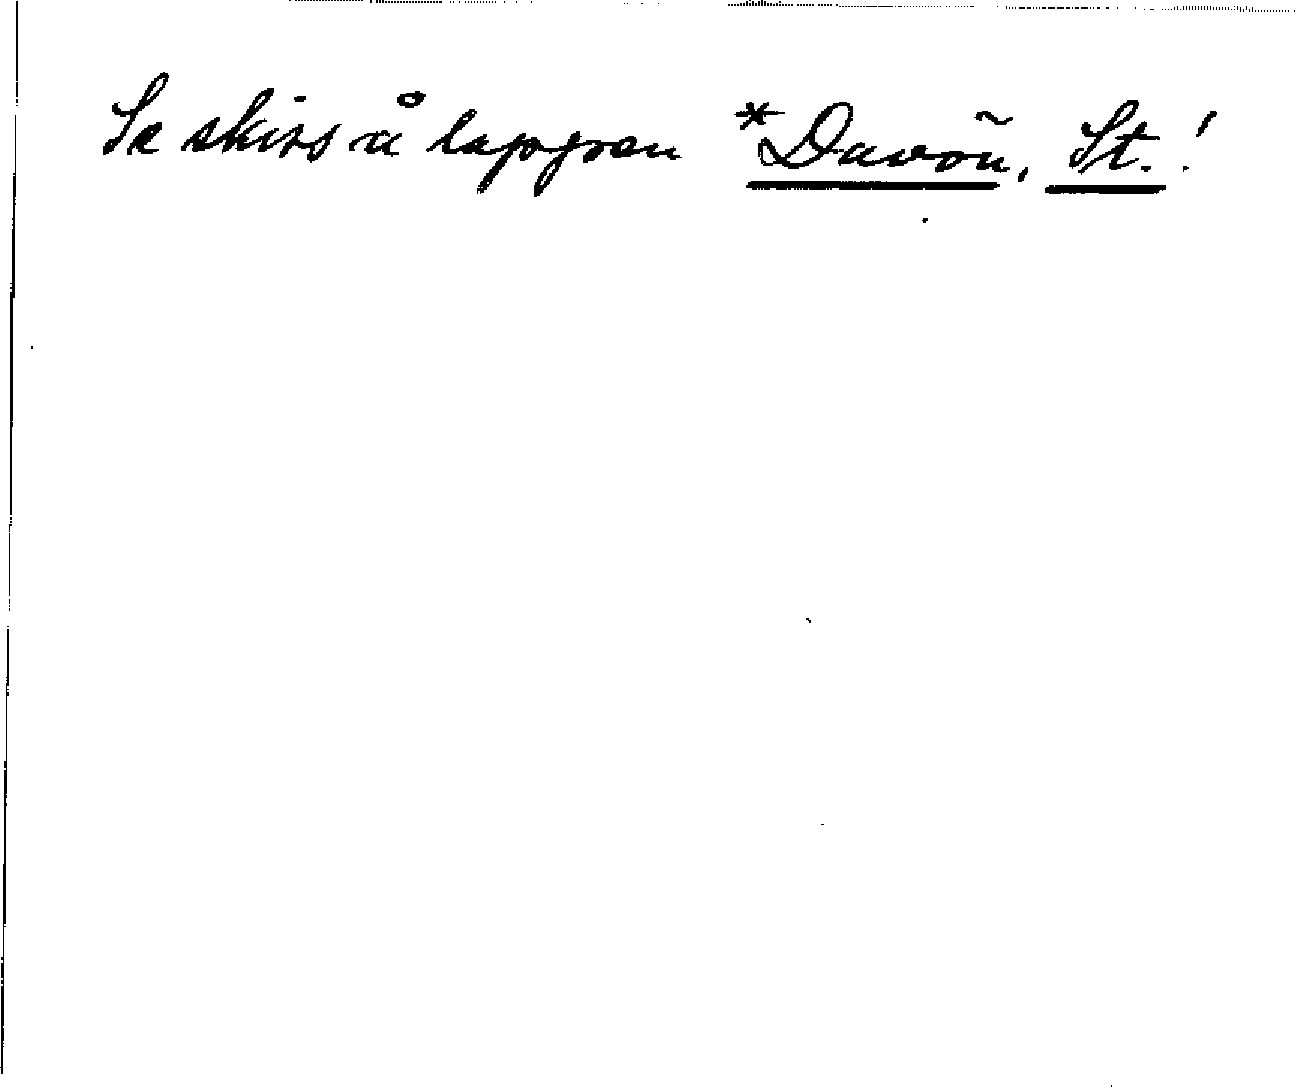 Se skiss å lappen *Davön, St.!